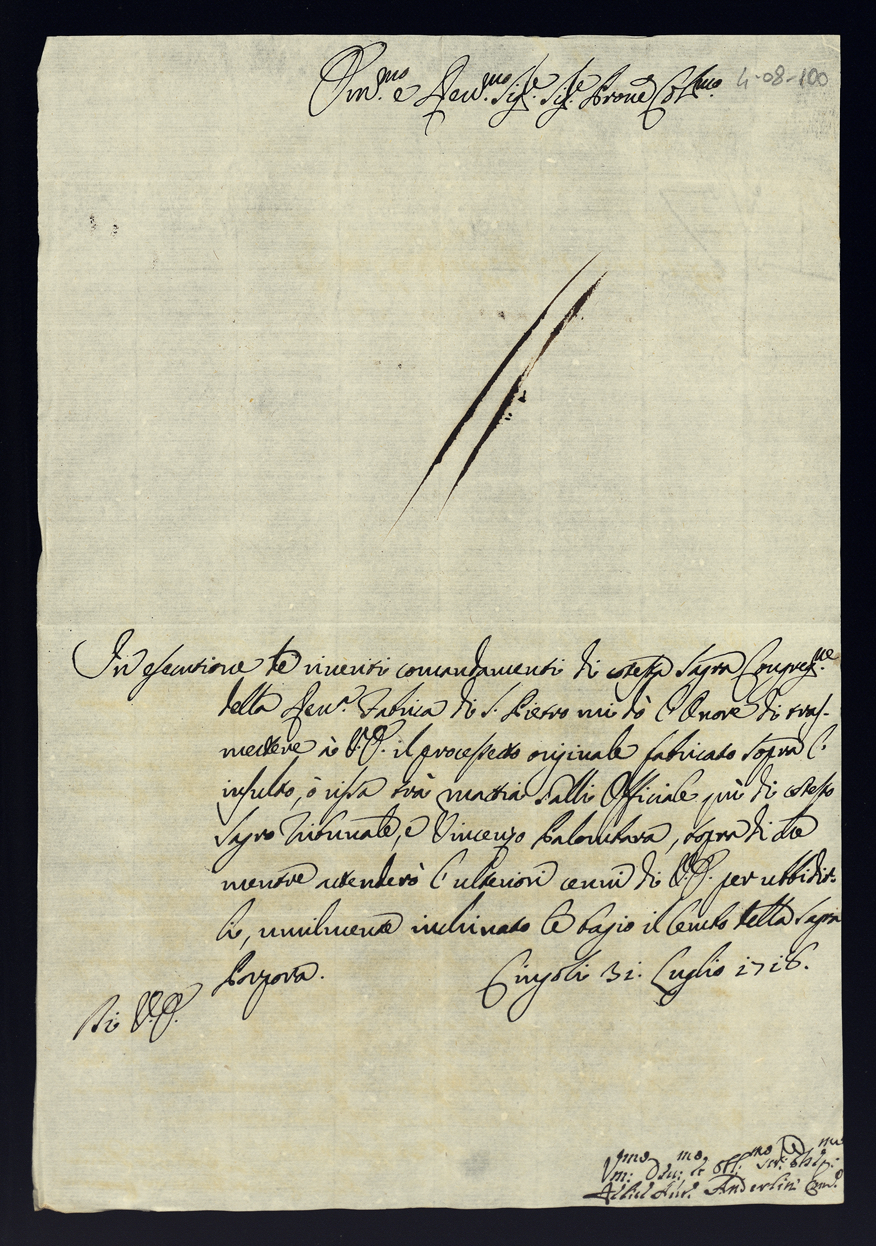 Em.mo e Rev.mo Sig.re Sig.re Prone Col.mo 4-08-100
In esecutione de riveriti comandamenti di cotesta Sagra Congreg.ne
della Rev.a Fabrica di S. Pietro mi dò l'Onore di tras-
mettere à V.E. il processetto originale fabricato sopra l'
insulto, ò rissa trà Mattia Salli Officiale più di cotesto
Sagro Tribunale, e Vincenzo Palombara, sopra di che
mentre attenderò l'ulteriori cenni di V.E. per ubbidir-
li, umilmente inchinato le bagio il lembo della Sagra
Porpora. Cingoli 31. Luglio 1718.
Di V.E.
Um:mo Dev:mo et Obl:mo Ser: Oblig:mo